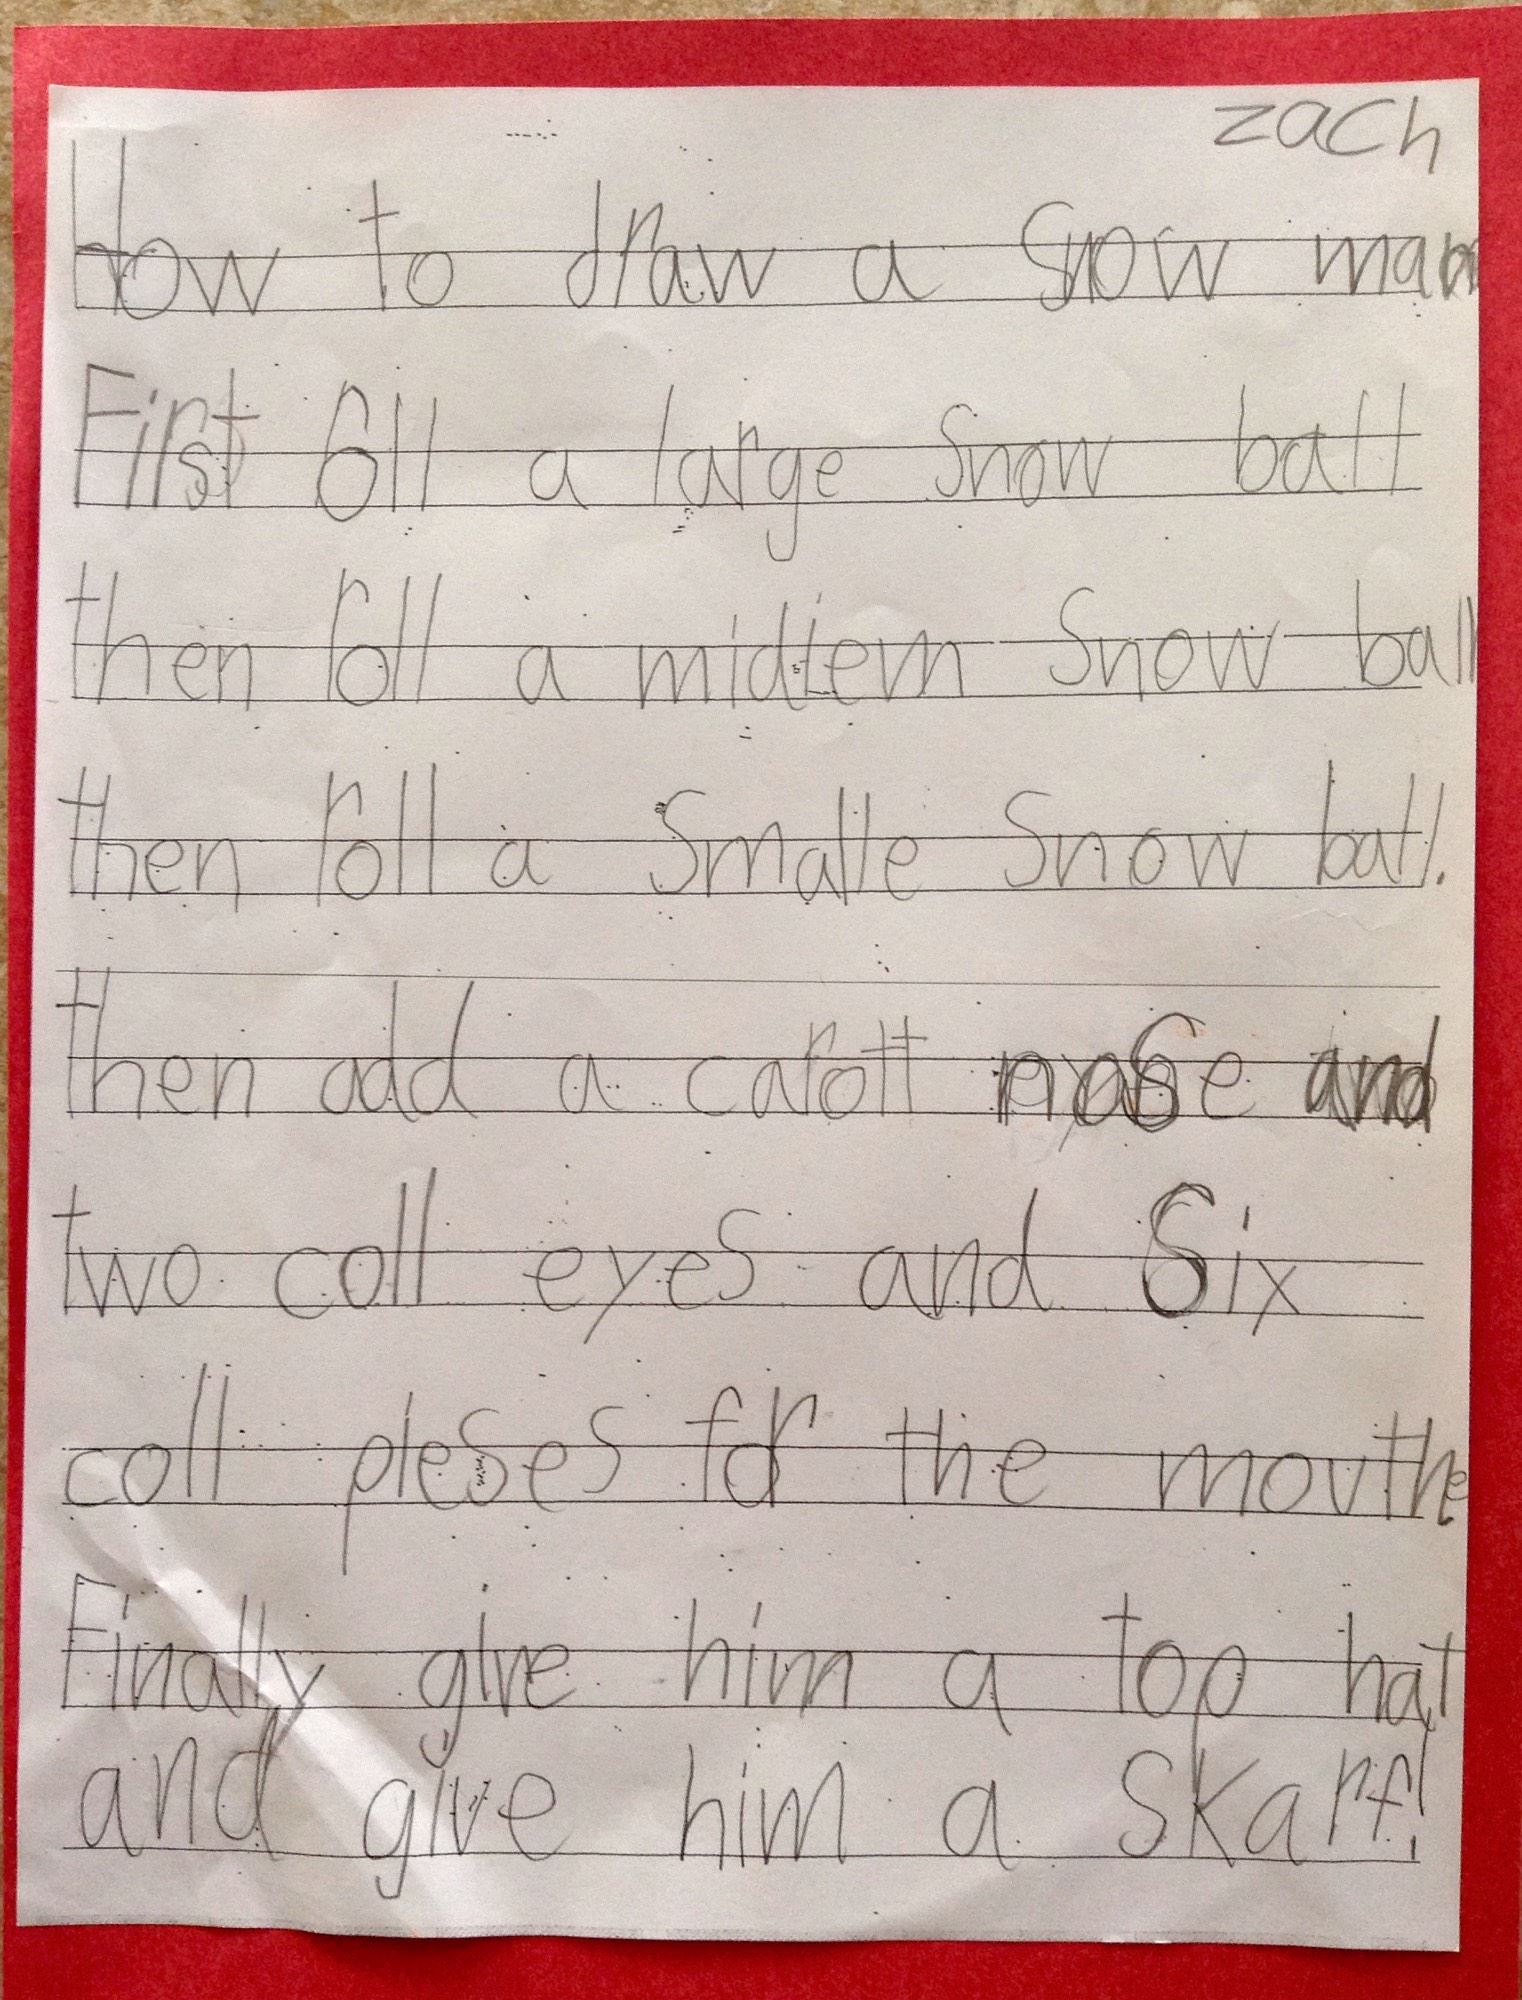 zach
How to draw a snow man
First roll a large snow ball
then roll a midiem snow ball
then roll a smalle snow ball.
then add a carott nose and
two coll eyes and six
coll pieses for the mouthe
Finally give him a top hat
and give him a skarf!